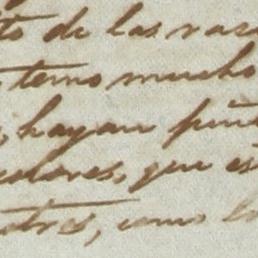 to de las raz
temo mucho
, hayan pin
colores, que es
otros, como lo